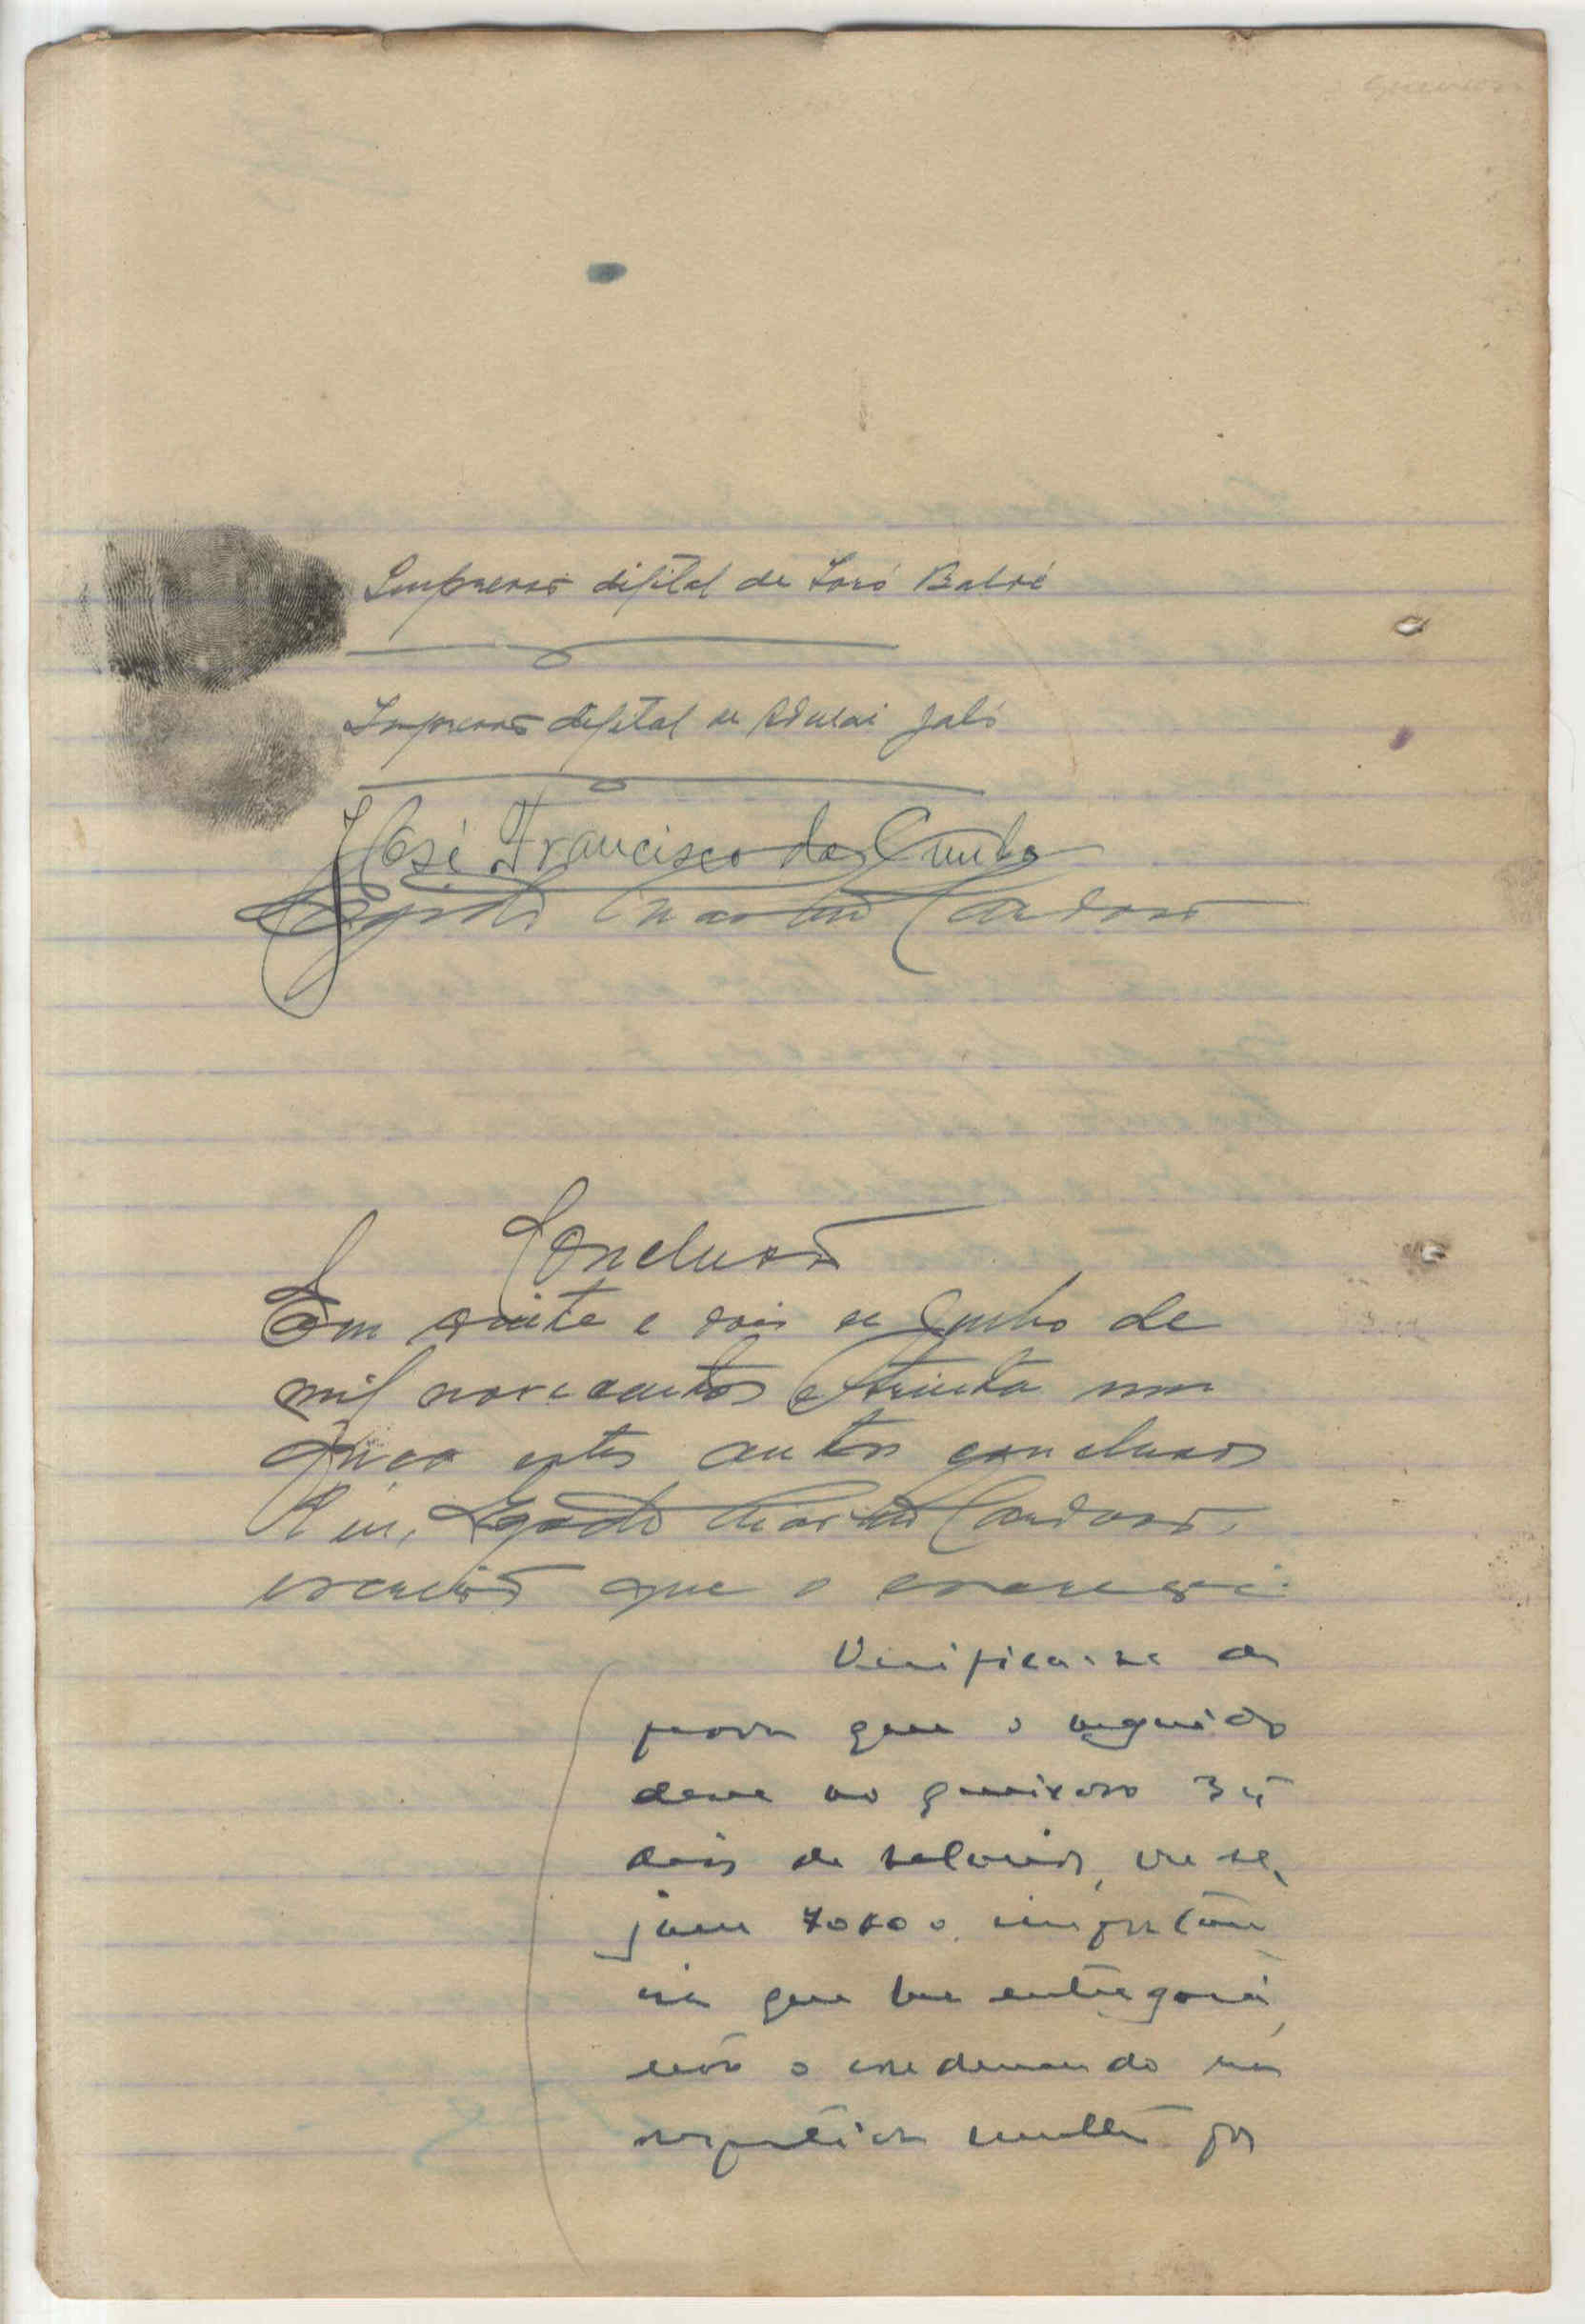 Impressão digital de Soró Baldé
Impressão digital de Jaló
José Francisco da Cunha
Cardoso
Conclusão
Em vinte e dois de Junho de
mil novecentos e trinta um
faço estes autos conclusos
Eu, Cardoso,
escrivão que o escrevi.
Verifica-se da
prova que o arguido
deve ao queixoso 35
dias de salários, ou se-
jam 70$00, importân
cia que lhe entregará,
não o condenando na
respectiva multa por